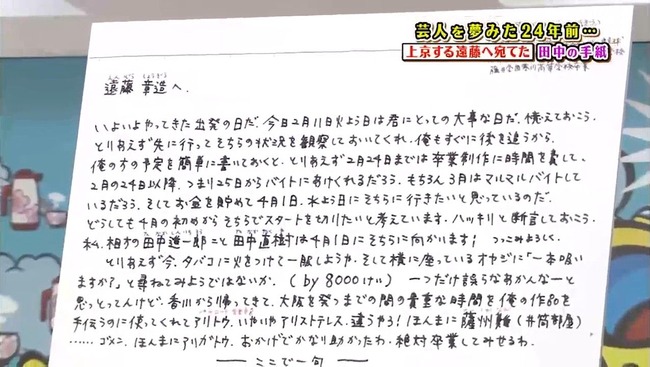 芸人を夢みた24年前…
上京する遠藤へ宛てた 田中の手紙
遠藤 章造へ.
いよいよやってきた出発の日だ. 今日2月11日火よう日は君にとっての大事な日だ. 憶えておこう.
とりあえず先に行ってそちらの状況を観察しておいてくれ. 俺もすぐに後を追うから.
俺の方の予定を簡単に書いておくと、とりあえず2月24日までは卒業創作に時間を費して、
2月の24日以降、つまり25日からバイトにあけくれるだろう. もちろん3月はマルマルバイトして
いるだろう. そしてお金を貯めて4月1日. 水よう日にそちらに行きたいと思っているのだ.
どうしても4月の初めからそちらでスタートを切りたいと考えています. ハッキリと断言しておこう.
私. 相方の田中進一郎こと田中直樹は4月1日にそちらに向かいます! つっこみよろしく.
とりあえず今. タバコに火をつけて一服しようや. そして横に座っているオヤジに「一本吸い
ますか?」と尋ねてみようではないか. (by 8000けい) 一つだけ謝らなあかんなーと
思っとってんけど. 香川から帰ってきて、大阪を発つまでの間の貴重な時間を俺の作品を
手伝うのに使ってくれてアリトウ. いやいやアリストテレス. 違うやろ! ほんまに薩州難 (井筒部屋)
……ゴメン. ほんまにアリガトウ. おかげでかなり助かったわ. 絶対卒業してみせるわ.
── ここで一句 ──